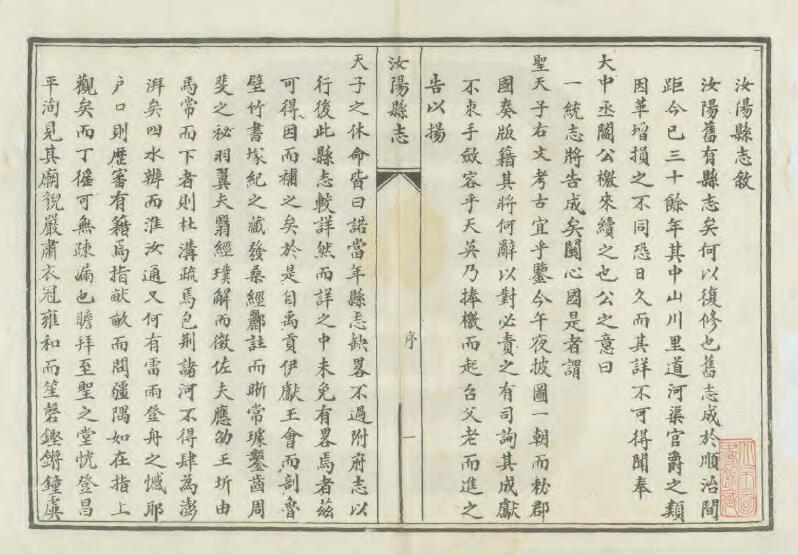 汝陽縣志敘
汝陽舊有縣志矣何以復修也舊志成於順治間
距今已三十餘年其中山川里道河渠官爵之類
因革增損之不同恐日久而其詳不可得聞奉
大中丞閻公檄來續之也公之意曰
一統志將告成矣關心國是者謂
聖天子右文考古宜乎鑒今午夜披圖一朝而勑郡
國奏版籍其將何辭以對必責之有司詢其成獻
不束手斂容乎天英乃捧檄而起台父老而進之
告以揚
汝陽縣志
序
一
天子之休命皆曰諾當年縣志缺畧不過附府志以
行後此縣志較詳然而詳之中未免有畧焉者茲
可得因而補之矣於是自禹貢伊獻王會而剖魯
壁竹書塚紀之藏發桑經酈註而晰常璩鑿齒周
斐之祕羽翼夫翳經璞解而徵佐夫應劭王圻由
馬常而下者則杜溝疏焉包荆諸河不得肆為澎
湃矣四水辨而淮汝通又何有雷雨登舟之憾耶
户口則歷審有籍焉指畝畝而問疆隅如在指上
觀矣而丁徭可無疎漏也瞻拜至聖之堂恍登昌
平洵見其廟貌嚴肅衣冠雍和而笙磬鏗鏘鐘虡